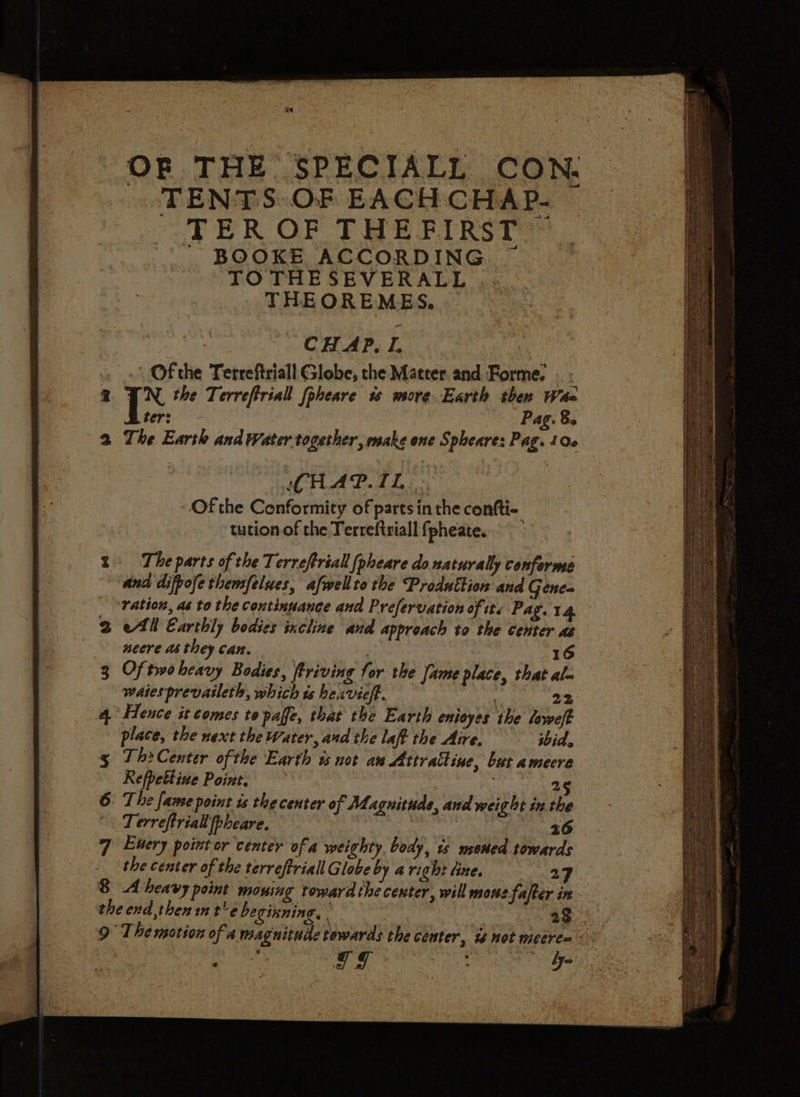 OF THE SPECIALL CON-
TENTS OF EACH CHAP-
TER OF THE FIRST
BOOKE ACCORDING
TO THE SEVERALL
THEOREMES.
CHAP. I.
Of the Terreſtriall Globe, the Matter and Forme.
1 IN the Terreſtriall ſpheare is more Earth then Wa-
ter: Pag. 8.
2 The Earth and Water together, make one Spheare: Pag. 10.
CHAP. II.
Of the Conformity of parts in the conſti-
tution of the Terreſtriall ſpheare.
1 The parts of the Terreſtriall ſpheare do naturally conforme
and diſpoſe themſelues, aſwell to the Production and Gene-
ration, as to the continuance and Preſervation of it. Pag. 14
2 All Earthly bodies incline and approach to the center as
neere as they can. 16
3 Of two heavy Bodies, ſtriving for the ſame place, that al-
waies prevaileth, which is heavieſt. 22
4 Hence it comes to paſſe, that the Earth enioyes the loweſt
place, the next the Water, and the laſt the Aire. ibid.
5 The Center of the Earth is not an Attractiue, but a meere
Reſpectiue Point. 25
6 The ſame point is the center of Magnitude, and weight in the
Terreſtriall ſpheare. 26
7 Euery point or center of a weighty body, is moued towards
the center of the terreſtriall Globe by a right line. 27
8 A heavy point mouing toward the center, will moue faſter in
the end, then in the beginning. 28
9 The motion of a magnitude towards the center, is not meere-
¶ ¶ ly-